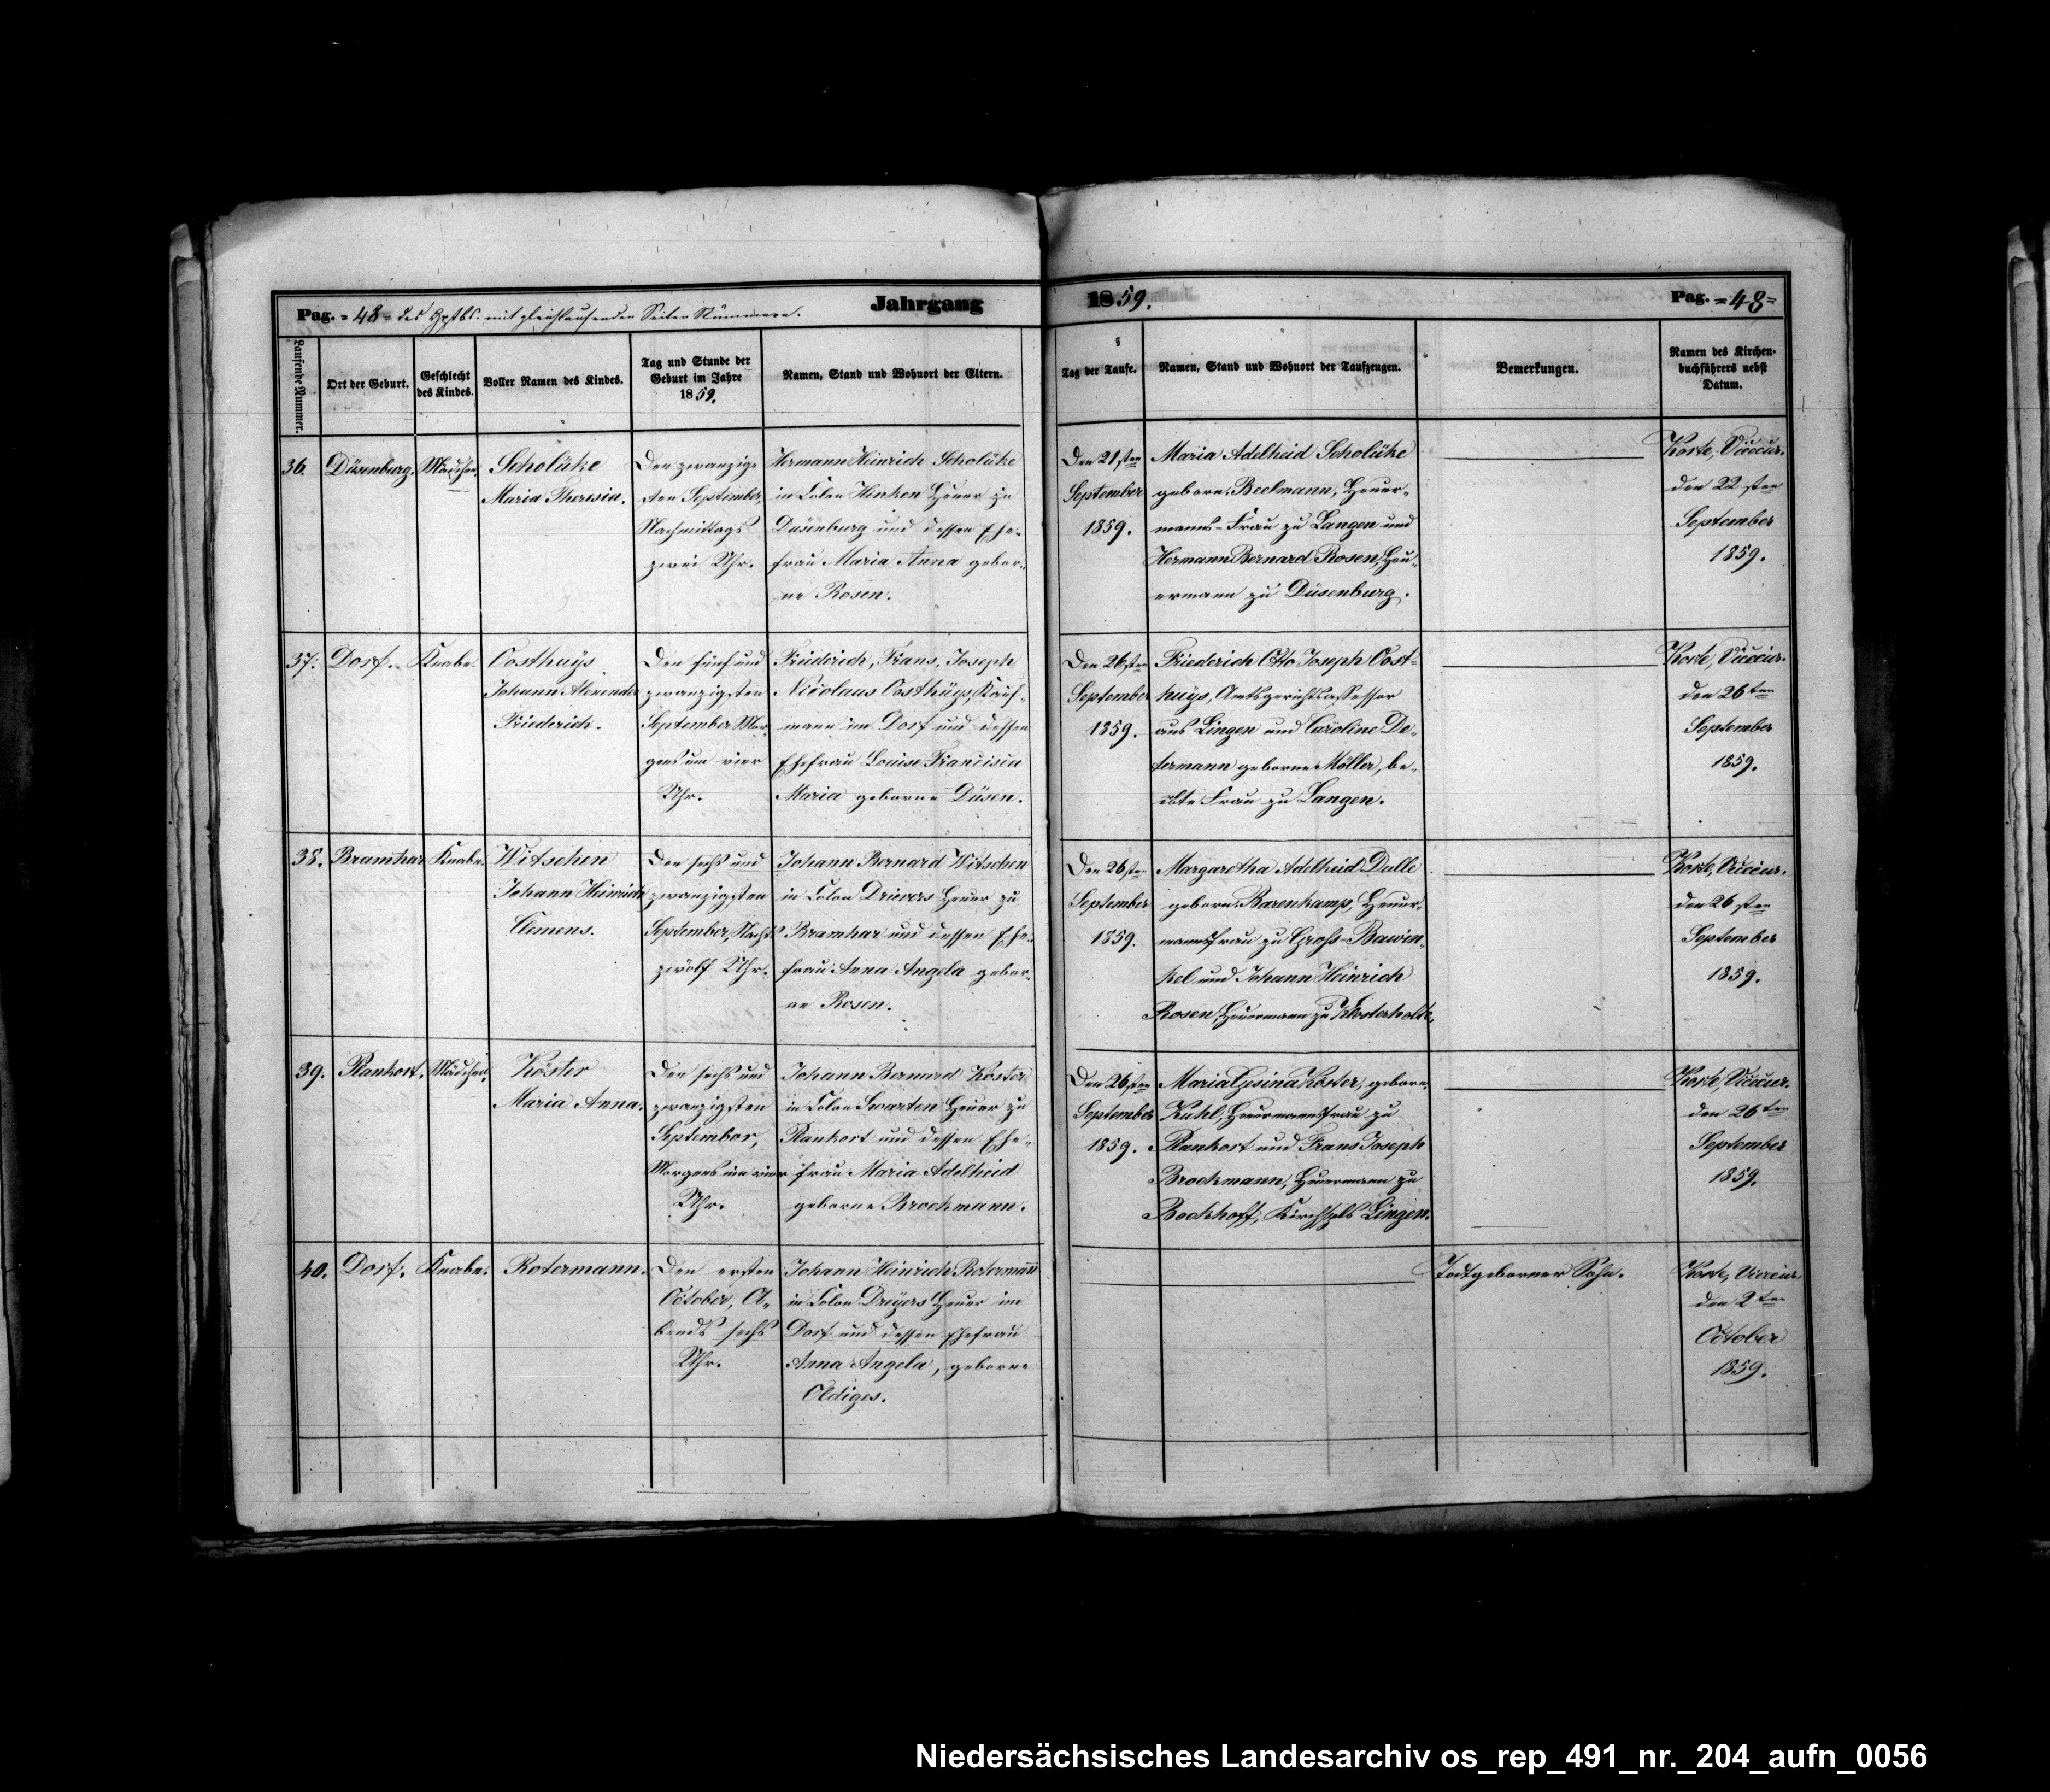 Pag. = 48 = des Hptbs. mit gleichlaufenden Seiten Nummern.
Jahrgang
1859.
Pag. = 48 =
Laufende Nummer.
Ort der Geburt.
Geschlecht
des Kindes.
Voller Namen des Kindes.
Tag und Stunde der
Geburt im Jahre
1859.
Namen, Stand und Wohnort der Eltern.
Tag der Taufe.
Namen, Stand und Wohnort der Taufzeugen.
Bemerkungen.
Namen des Kirchen-
buchführers nebst
Datum.
36.
Düsenburg.
Mädchen.
Scholüke
Maria Theresia.
Den zwanzig-
sten September,
Nachmittags
zwei Uhr.
Hermann Heinrich Scholüke
in Colon Hinken Heuer zu
Düsenburg und dessen Ehe-
frau Maria Anna gebor-
ne Rosen.
Den 21sten
September
1859.
Maria Adelheid Scholüke
geborne Beelmann, Heuer-
manns-Frau zu Langen und
Hermann Bernard Rosen, Heu-
ermann zu Düsenburg.
Korte, Viccur.
den 22sten
September
1859.
37.
Dorf.
Knabe.
Oosthuÿs
Johann Alexander
Friederich.
Den fünf und
zwanzigsten
September Mor-
gens um vier
Uhr.
Friederich, Frans, Joseph
Nicolaus Oosthüys, Kauf-
mann im Dorf und dessen
Ehefrau Louise Francisca
Maria geborne Düsen.
Den 26sten
September
1859.
Friederich Otto Joseph Oost-
huÿs, Amtsgerichtsassessor
aus Lingen und Caroline De-
termann geborne Möller, be-
erbte Frau zu Langen.
Korte, Viccur.
den 26ten
September
1859.
38.
Bramhar
Knabe.
Witschen
Johann Heinrich
Clemens.
Den sechs und
zwanzigsten
September, Nachts
zwölf Uhr.
Johann Bernard Witschen
in Colon Drievers Heuer zu
Bramhar und dessen Ehe-
frau Anna Angela gebor-
ne Rosen.
Den 26sten
September
1859.
Margaretha Adelheid Dulle
geborne Barenkamp, Heuer-
mannsfrau zu Gross-Bawin-
kel und Johann Heinrich
Rosen, Heuermann zu Klosterholte.
Korte, Viccur.
den 26sten
September
1859.
39.
Plankort.
Mädchen.
Köster
Maria Anna.
Den sechs und
zwanzigsten
September,
Morgens um vier
Uhr.
Johann Bernard Köster
in Colon Swarten Heuer zu
Plankort und dessen Ehe-
frau Maria Adelheid
geborne Brockmann.
Den 26sten
September
1859.
Maria Gesina Köster, geborne
Kuhl, Heuermannsfrau zu
Plankort und Frans Joseph
Brockmann, Heuermann zu
Bockhoff, Kirchspls Lingen.
Korte, Viccur.
den 26ten
September
1859.
40.
Dorf.
Knabe.
Rotermann.
Den ersten
October, A-
bends sechs
Uhr.
Johann Heinrich Rotermann
in Colon Dreÿers Heuer im
Dorf und dessen Ehefrau
Anna Angela, geborne
Oldiges.
Todtgeborner Sohn.
Korte, Viccur.
den 2ten
October
1859.
Niedersächsisches Landesarchiv os_rep_491_nr._204_aufn_0056